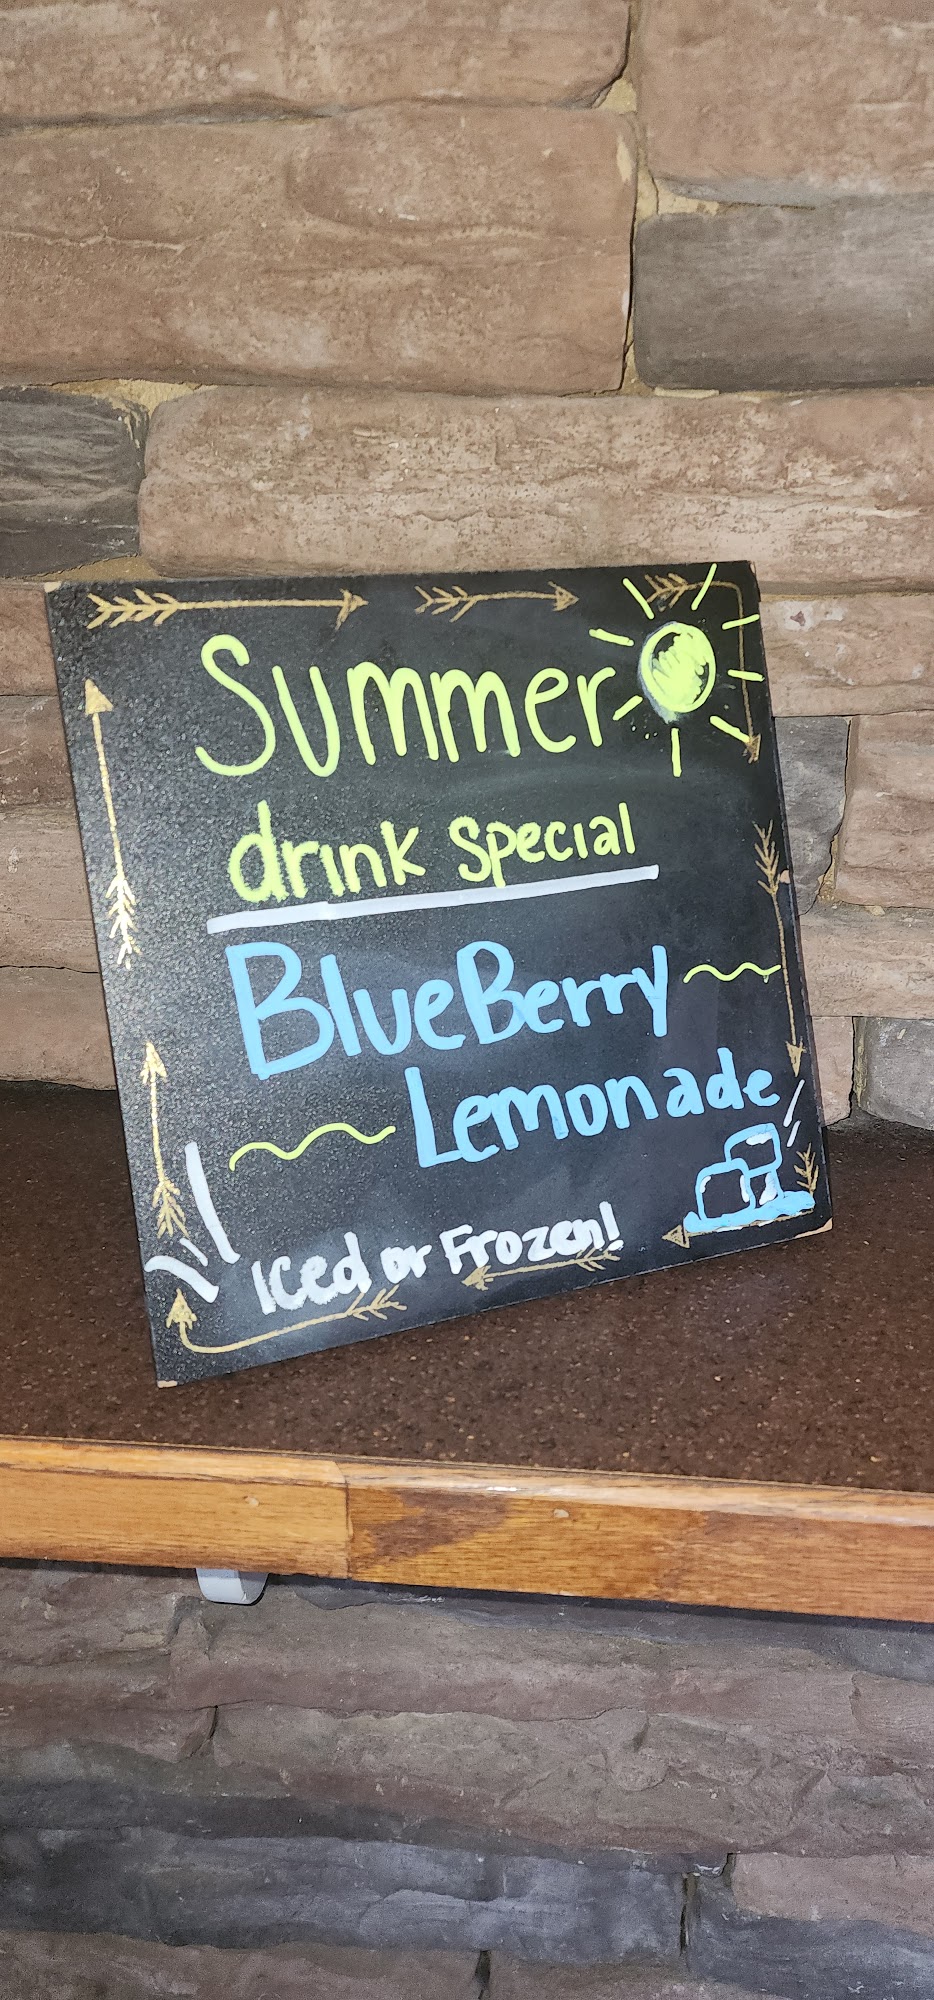 Summer
drink special
BlueBerry
Lemonade
Iced or Frozen!